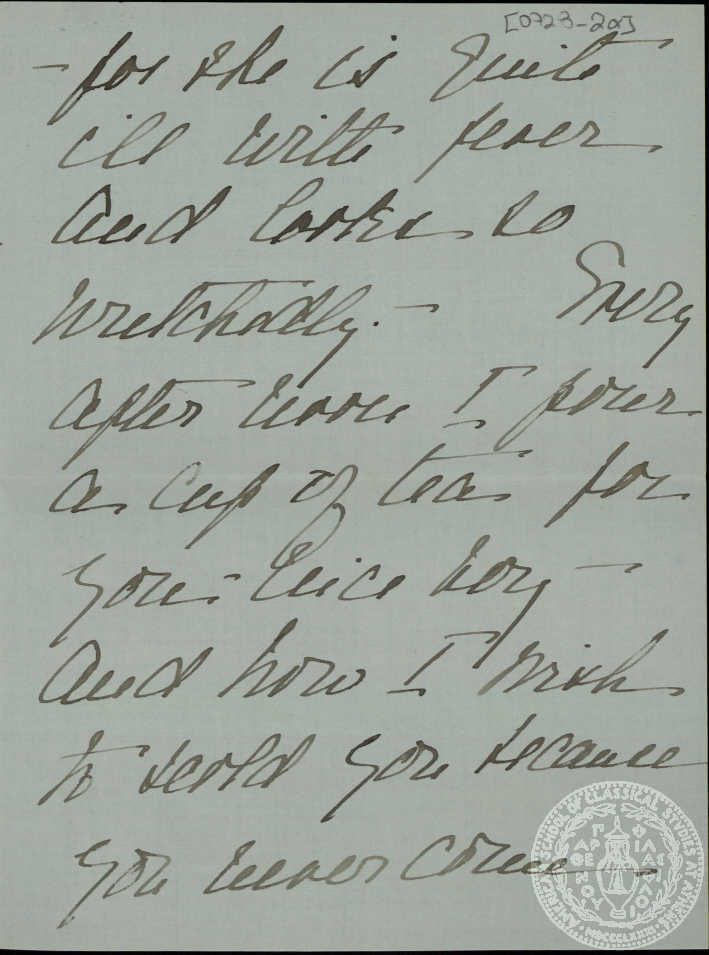 [0723-2a]
- for she is quite
ill with fever
and looks so
wretchedly. - Every
after noon I pour
a cup of tea for
you - nice boy -
and now I wish
to scold you because
you never come -
AMERICAN SCHOOL OF CLASSICAL STUDIES AT ATHENS
MDCCCLXXXI
ΠΑΡΘΕΝΟΥ ΦΙΛΑΣ ΦΙΛΟΙ